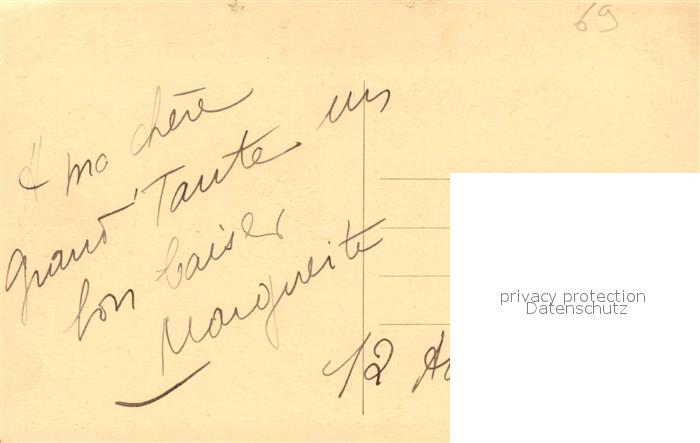 69
A ma chère
Grand'Tante un
bon baiser
Marguerite
12 A
privacy protection
Datenschutz